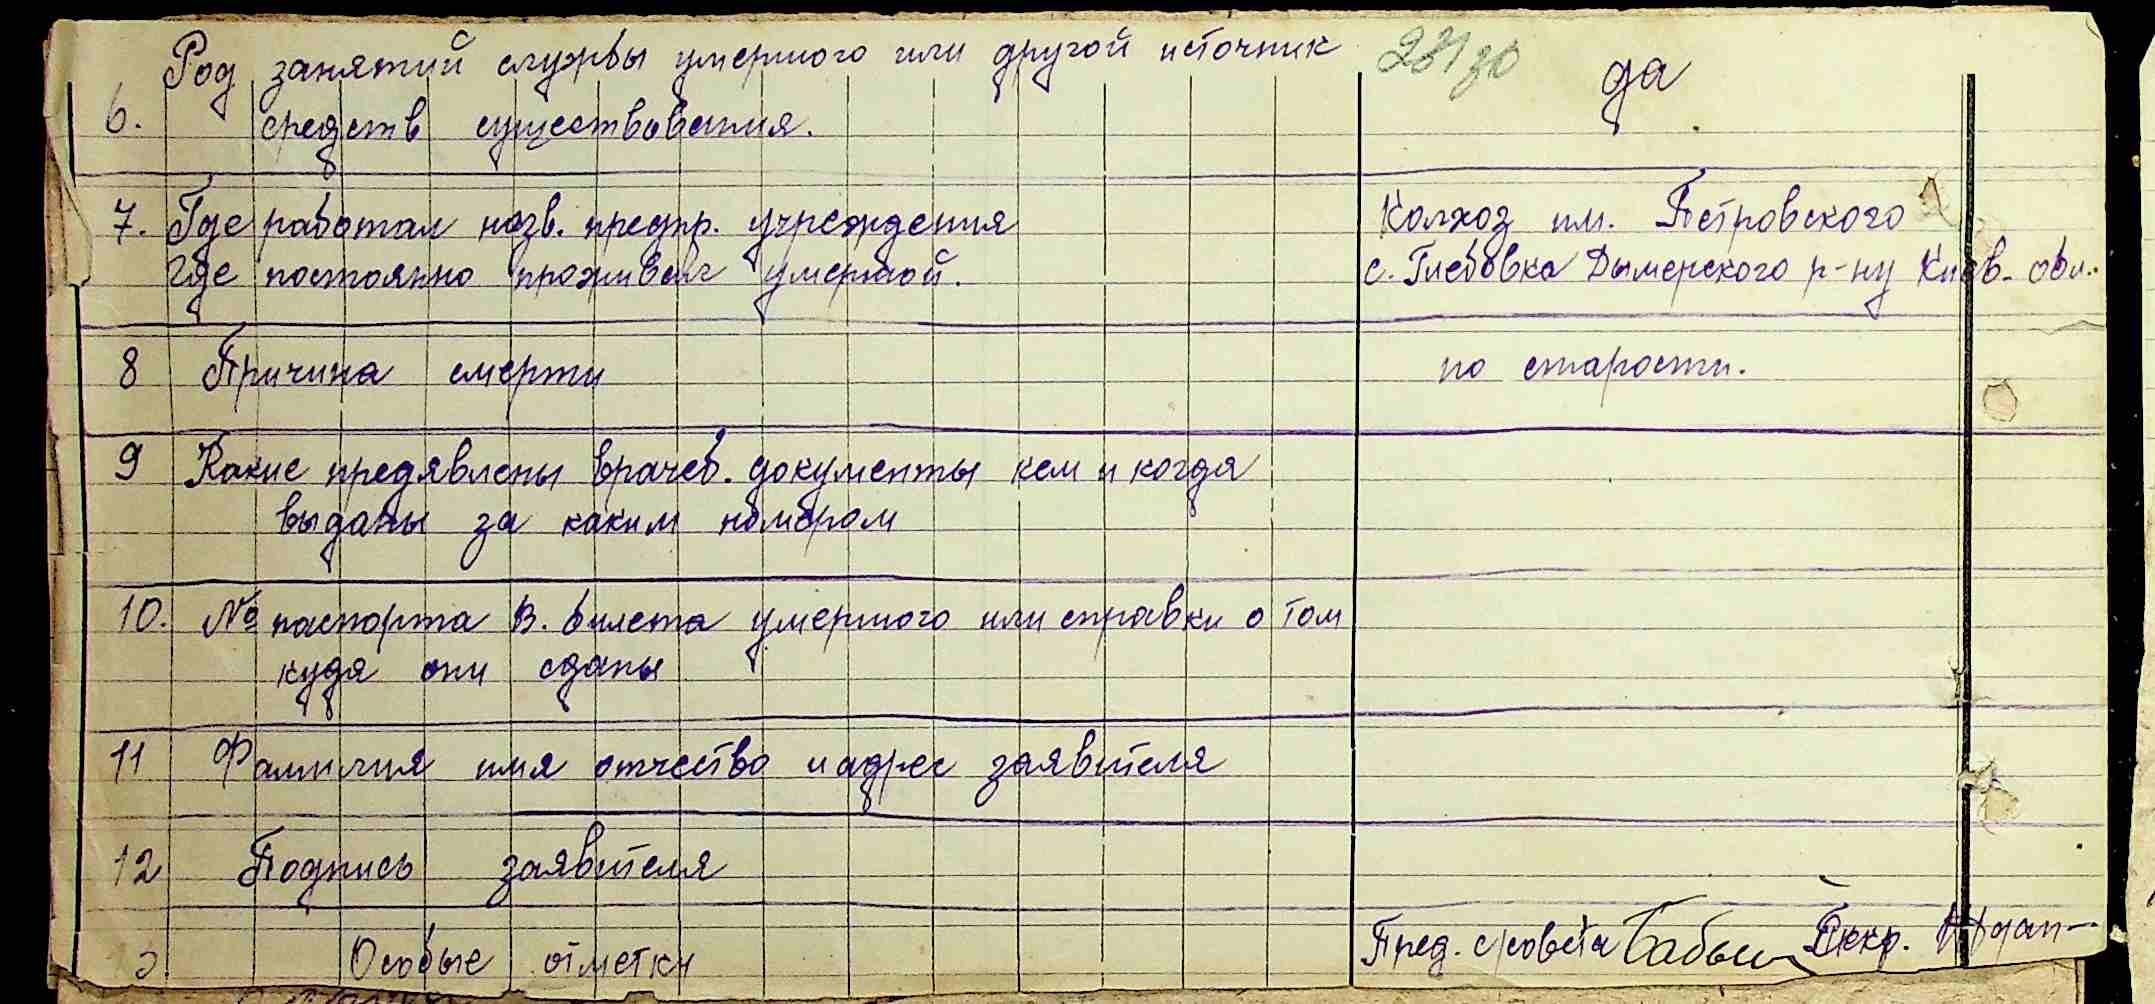 Род занятий службы умершого или другой источник да
6. средств существования.
7. Где работал назв. предпр. учреждения Колхоз им. Петровского
где постоянно проживал умершой. с. Глебовка Дымерского р-ну Киев. обл.
8 Причина смерти по старости.
9 Какие предявлены врачеб. документы кем и когда
выданы за каким номером
10. № паспорта В. билета умершого или справки о том
куда они сданы
11 Фамилия имя отчество и адрес заявителя
12 Подпись заявителя
Особые отметки Пред. с совета